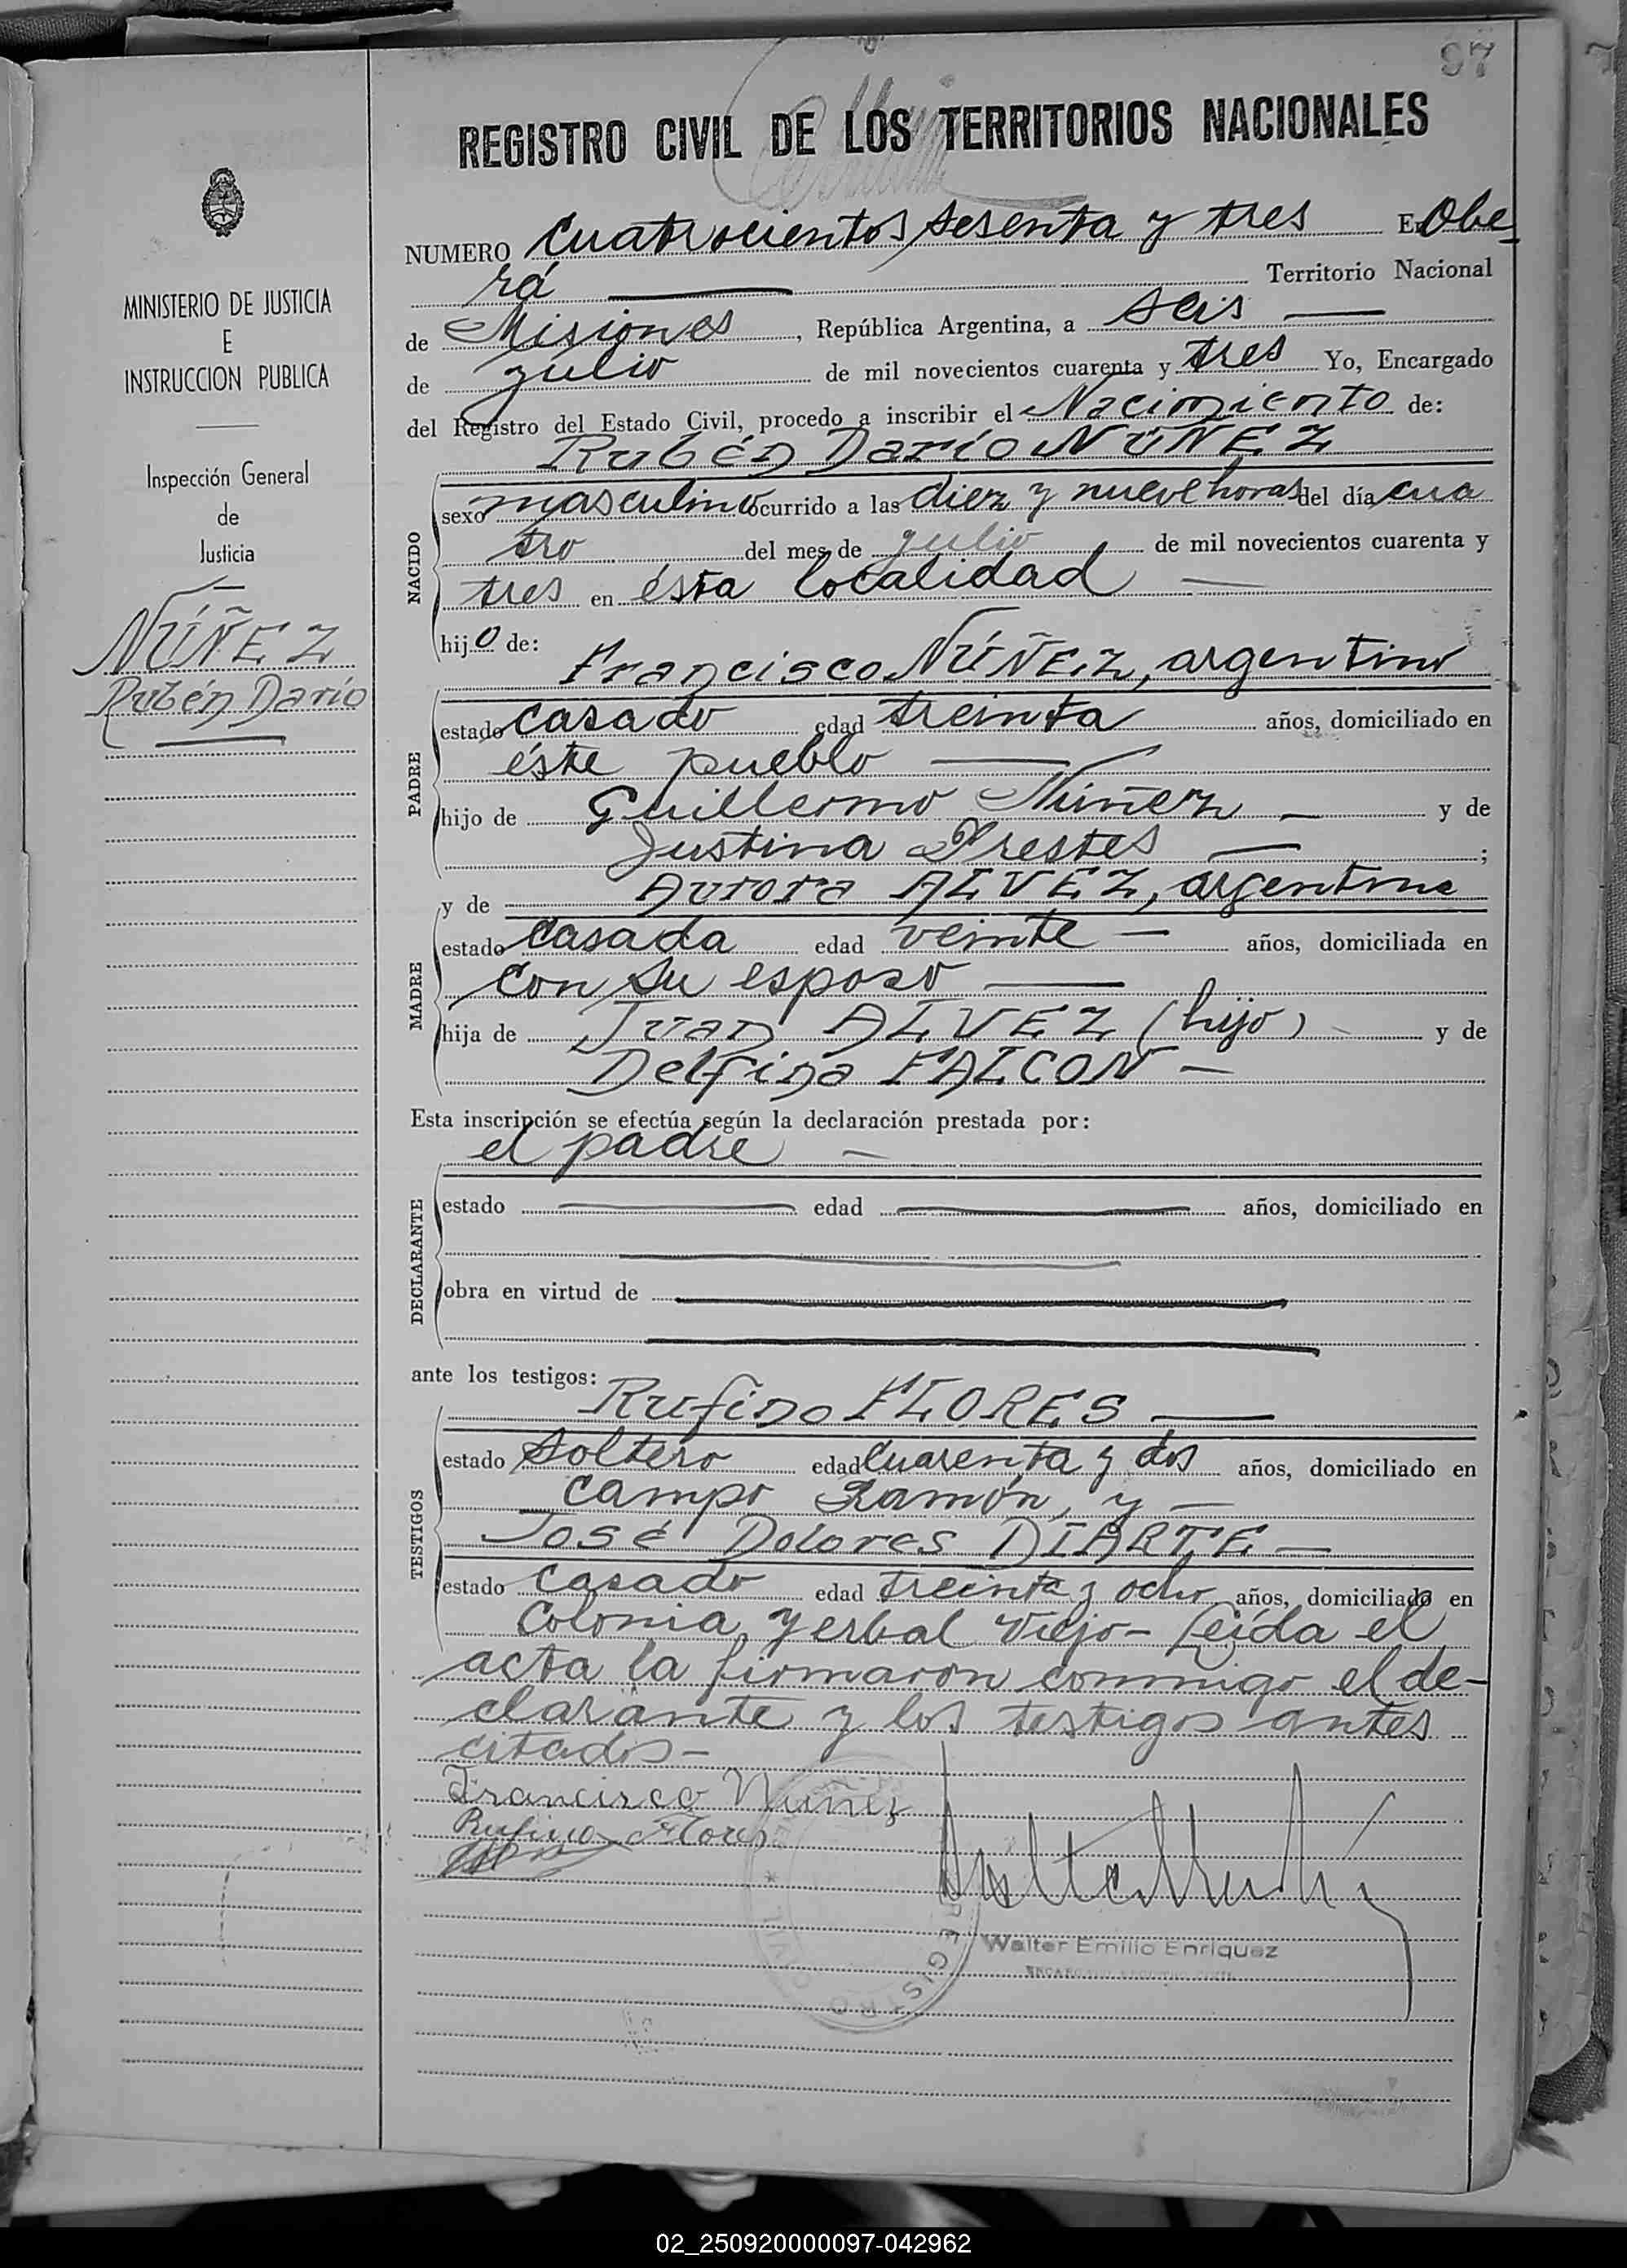 97
REGISTRO CIVIL DE LOS TERRITORIOS NACIONALES
NUMERO cuatrocientos sesenta y tres En Obe-
rá Territorio Nacional
de Misiones, República Argentina, a seis
de julio de mil novecientos cuarenta y tres Yo, Encargado
del Registro del Estado Civil, procedo a inscribir el Nacimiento de:
Rubén Darío NÚÑEZ
NACIDO
sexo masculino ocurrido a las diez y nueve horas del día cua
tro del mes de julio de mil novecientos cuarenta y
tres en ésta localidad
hijo de:
Francisco NÚÑEZ, argentino
PADRE
estado casado edad treinta años, domiciliado en
éste pueblo
hijo de Guillermo Núñez y de
Justina Prestes ;
y de Aurora ALVEZ, argentina
MADRE
estado casada edad veinte años, domiciliada en
con su esposo
hija de Juan ALVEZ (hijo) y de
Delfina FALCON
Esta inscripción se efectúa según la declaración prestada por:
el padre
DECLARANTE
estado edad años, domiciliado en
obra en virtud de
ante los testigos:
Rufino FLORES
TESTIGOS
estado soltero edad cuarenta y dos años, domiciliado en
campo Ramón, y
José Dolores DIARTE
estado casado edad treinta y ocho años, domiciliado en
Colonia Yerbal Viejo - Leída el
acta la firmaron conmigo el de-
clarante y los testigos antes
citados -
Francisco Nuñez
Rufino Flores
Walter Emilio Enriquez
ENCARGADO REGISTRO CIVIL
REGISTRO CIVIL
MINISTERIO DE JUSTICIA
E
INSTRUCCION PUBLICA
Inspección General
de
Justicia
NÚÑEZ
Rubén Darío
02_250920000097-042962